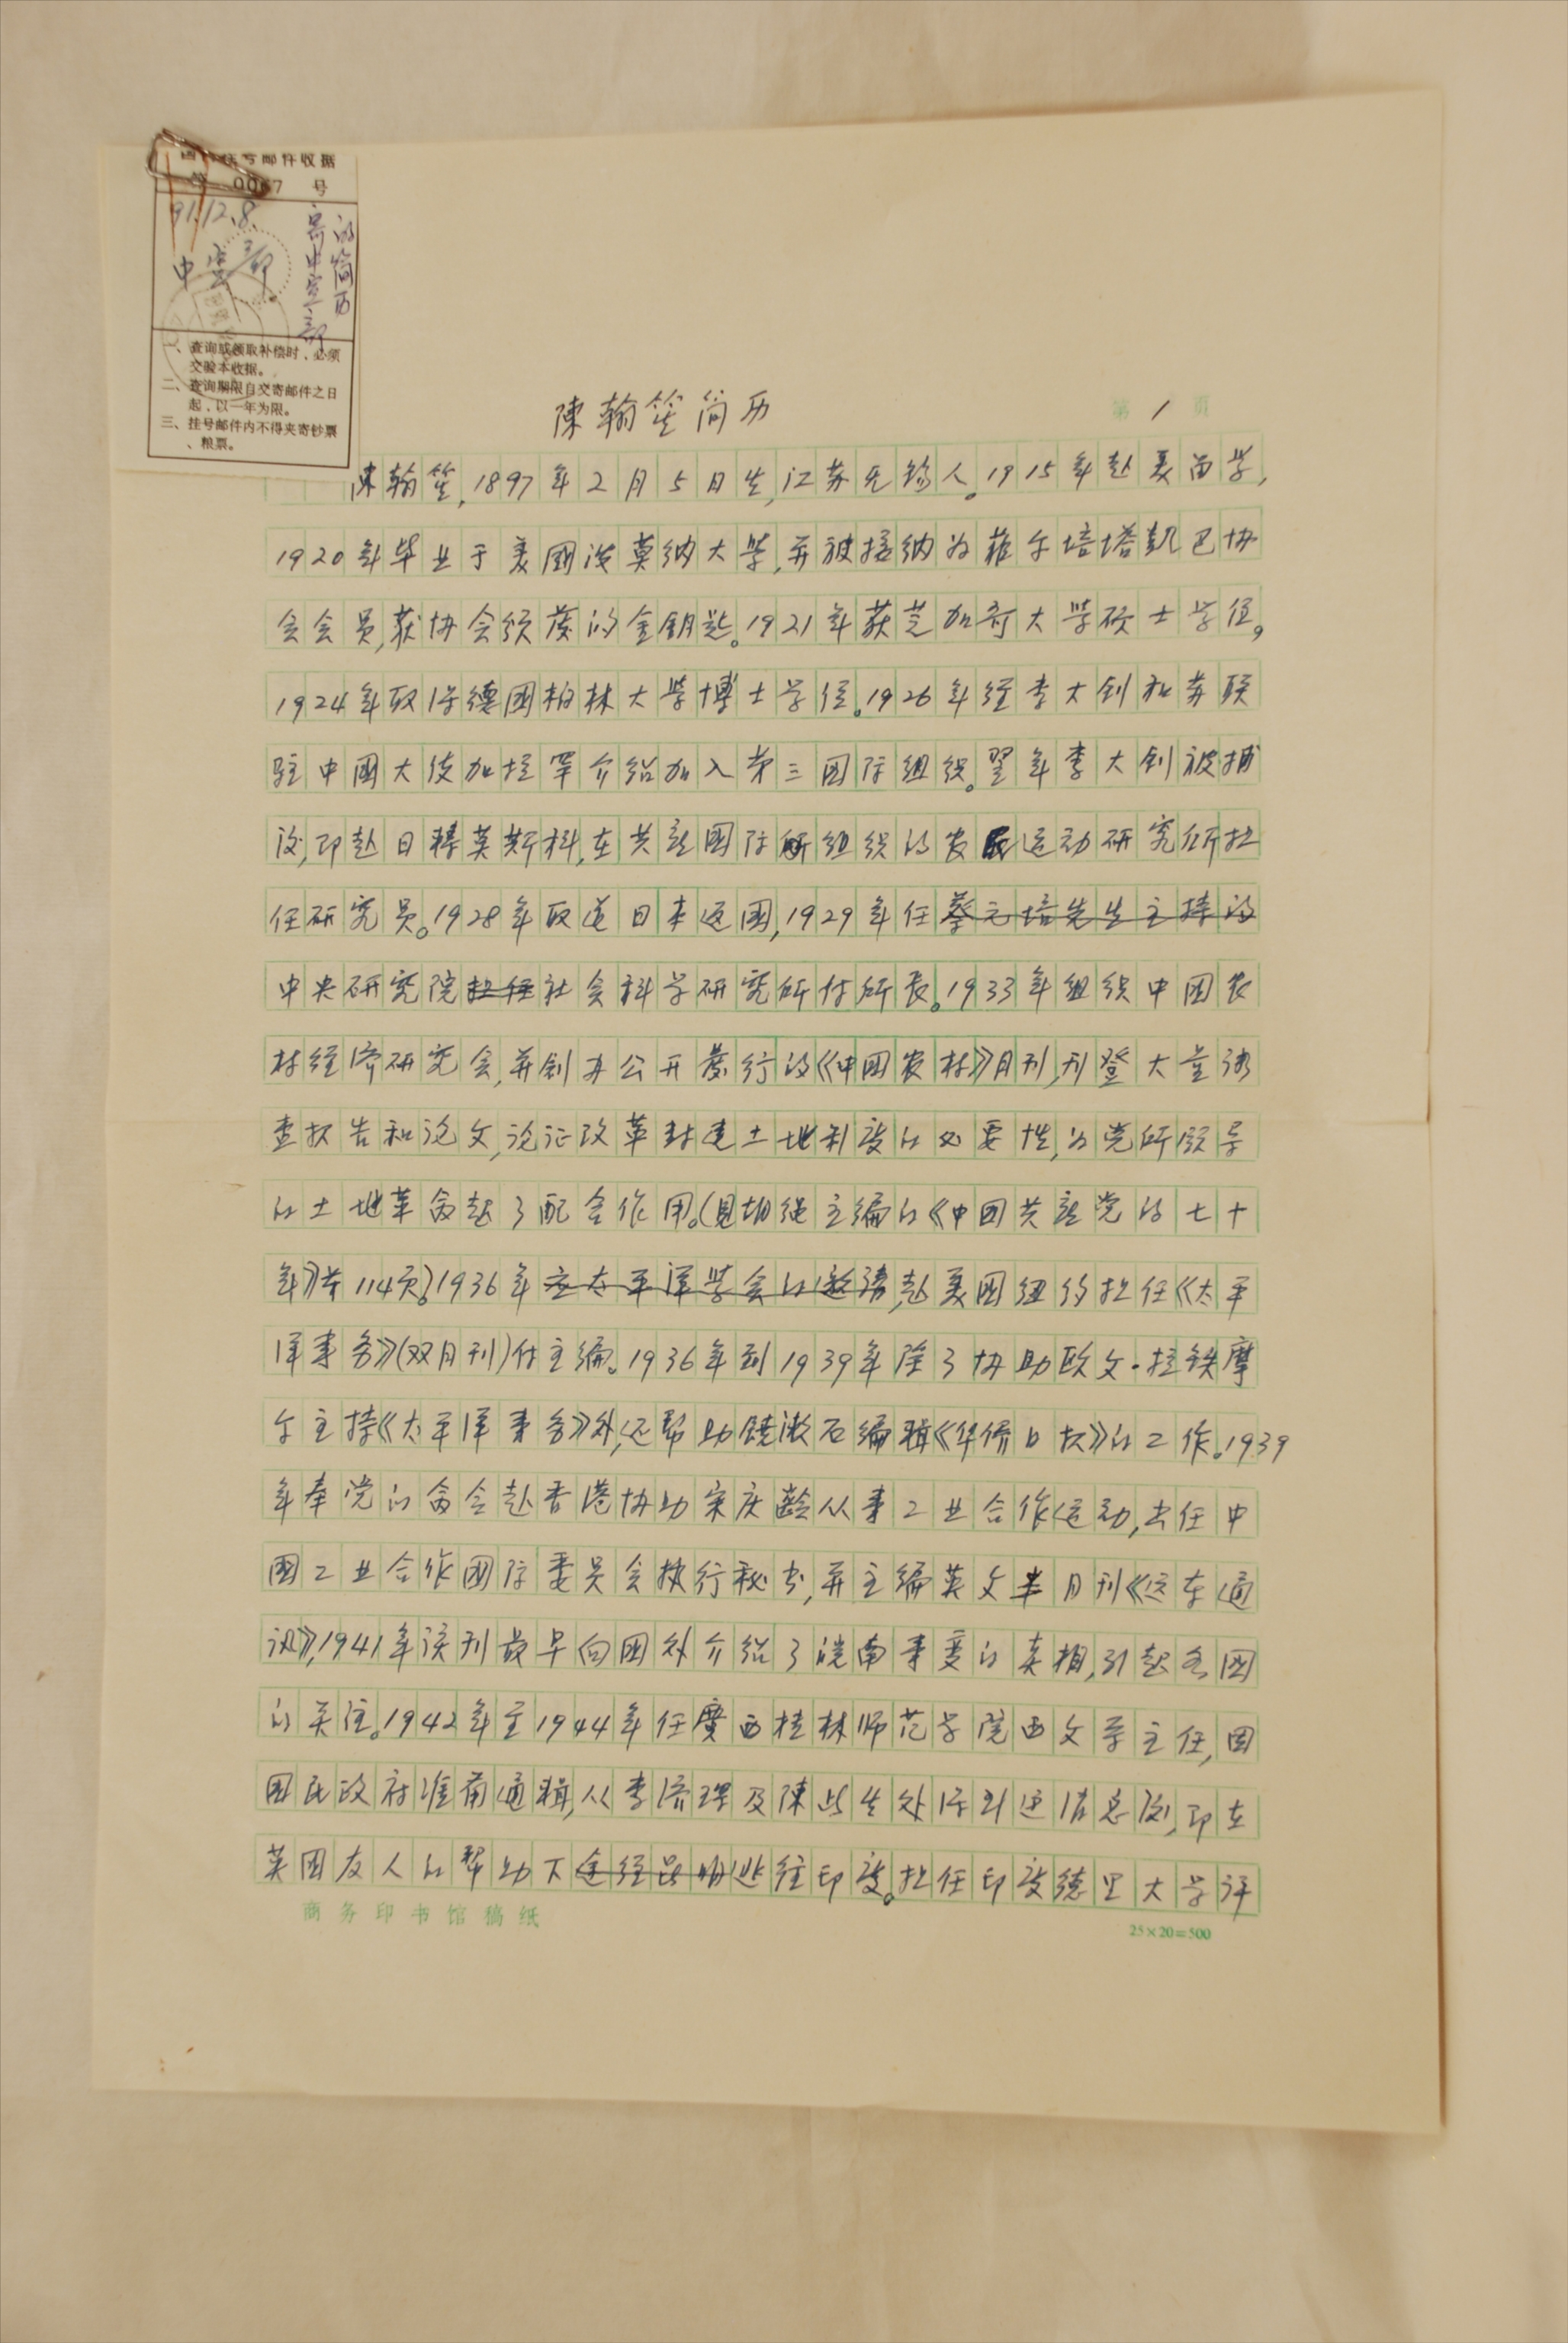 国内挂号邮件收据
第 0047 号
91.12.8.
中宣部
的简历
寄中宣部
一、查询或领取补偿时，必须
交验本收据。
二、查询期限自交寄邮件之日
起，以一年为限。
三、挂号邮件内不得夹寄钞票
、粮票。
陳翰笙简历
第 1 页
陳翰笙，1897年2月5日生，江苏无锡人。1915年赴美留学，
1920年毕业于美國波莫纳大学，并被接纳为菲尔培塔凯巴协
会会员，获协会颁发的金钥匙。1921年获芝加哥大学硕士学位，
1924年取得德國柏林大学博士学位。1926年经李大钊和苏联
驻中國大使加拉罕介绍加入第三国际组织。翌年李大钊被捕
后，即赴日转莫斯科，在共产國际所组织的农民运动研究所担
任研究员。1928年取道日本返國，1929年任蔡元培先生主持的
中央研究院担任社会科学研究所付所長。1933年组织中国农
村经济研究会，并创办公开发行的《中国农村》月刊，刊登大量调
查报告和论文，论证改革封建土地制度的必要性，为党所领导
的土地革命起了配合作用。（见胡绳主编的《中国共产党的七十
年》第114页）1936年应太平洋学会的邀请，赴美国纽约担任《太平
洋事务》（双月刊）付主编。1936年到1939年除了协助欧文·拉铁摩
尔主持《太平洋事务》外，还帮助饶漱石编辑《华侨日报》的工作。1939
年奉党的命令赴香港协助宋庆龄从事工业合作运动，出任中
國工业合作國际委员会执行秘书，并主编英文半月刊《远东通
讯》，1941年该刊最早向國外介绍了皖南事变的真相，引起各國
的关注。1942年至1944年任廣西桂林师范学院西文系主任，因
国民政府准备通辑，从李济琛及陳此生处得到这消息后，即在
英国友人的帮助下途经昆明逃往印度。担任印度德里大学评
商务印书馆稿纸
25×20=500